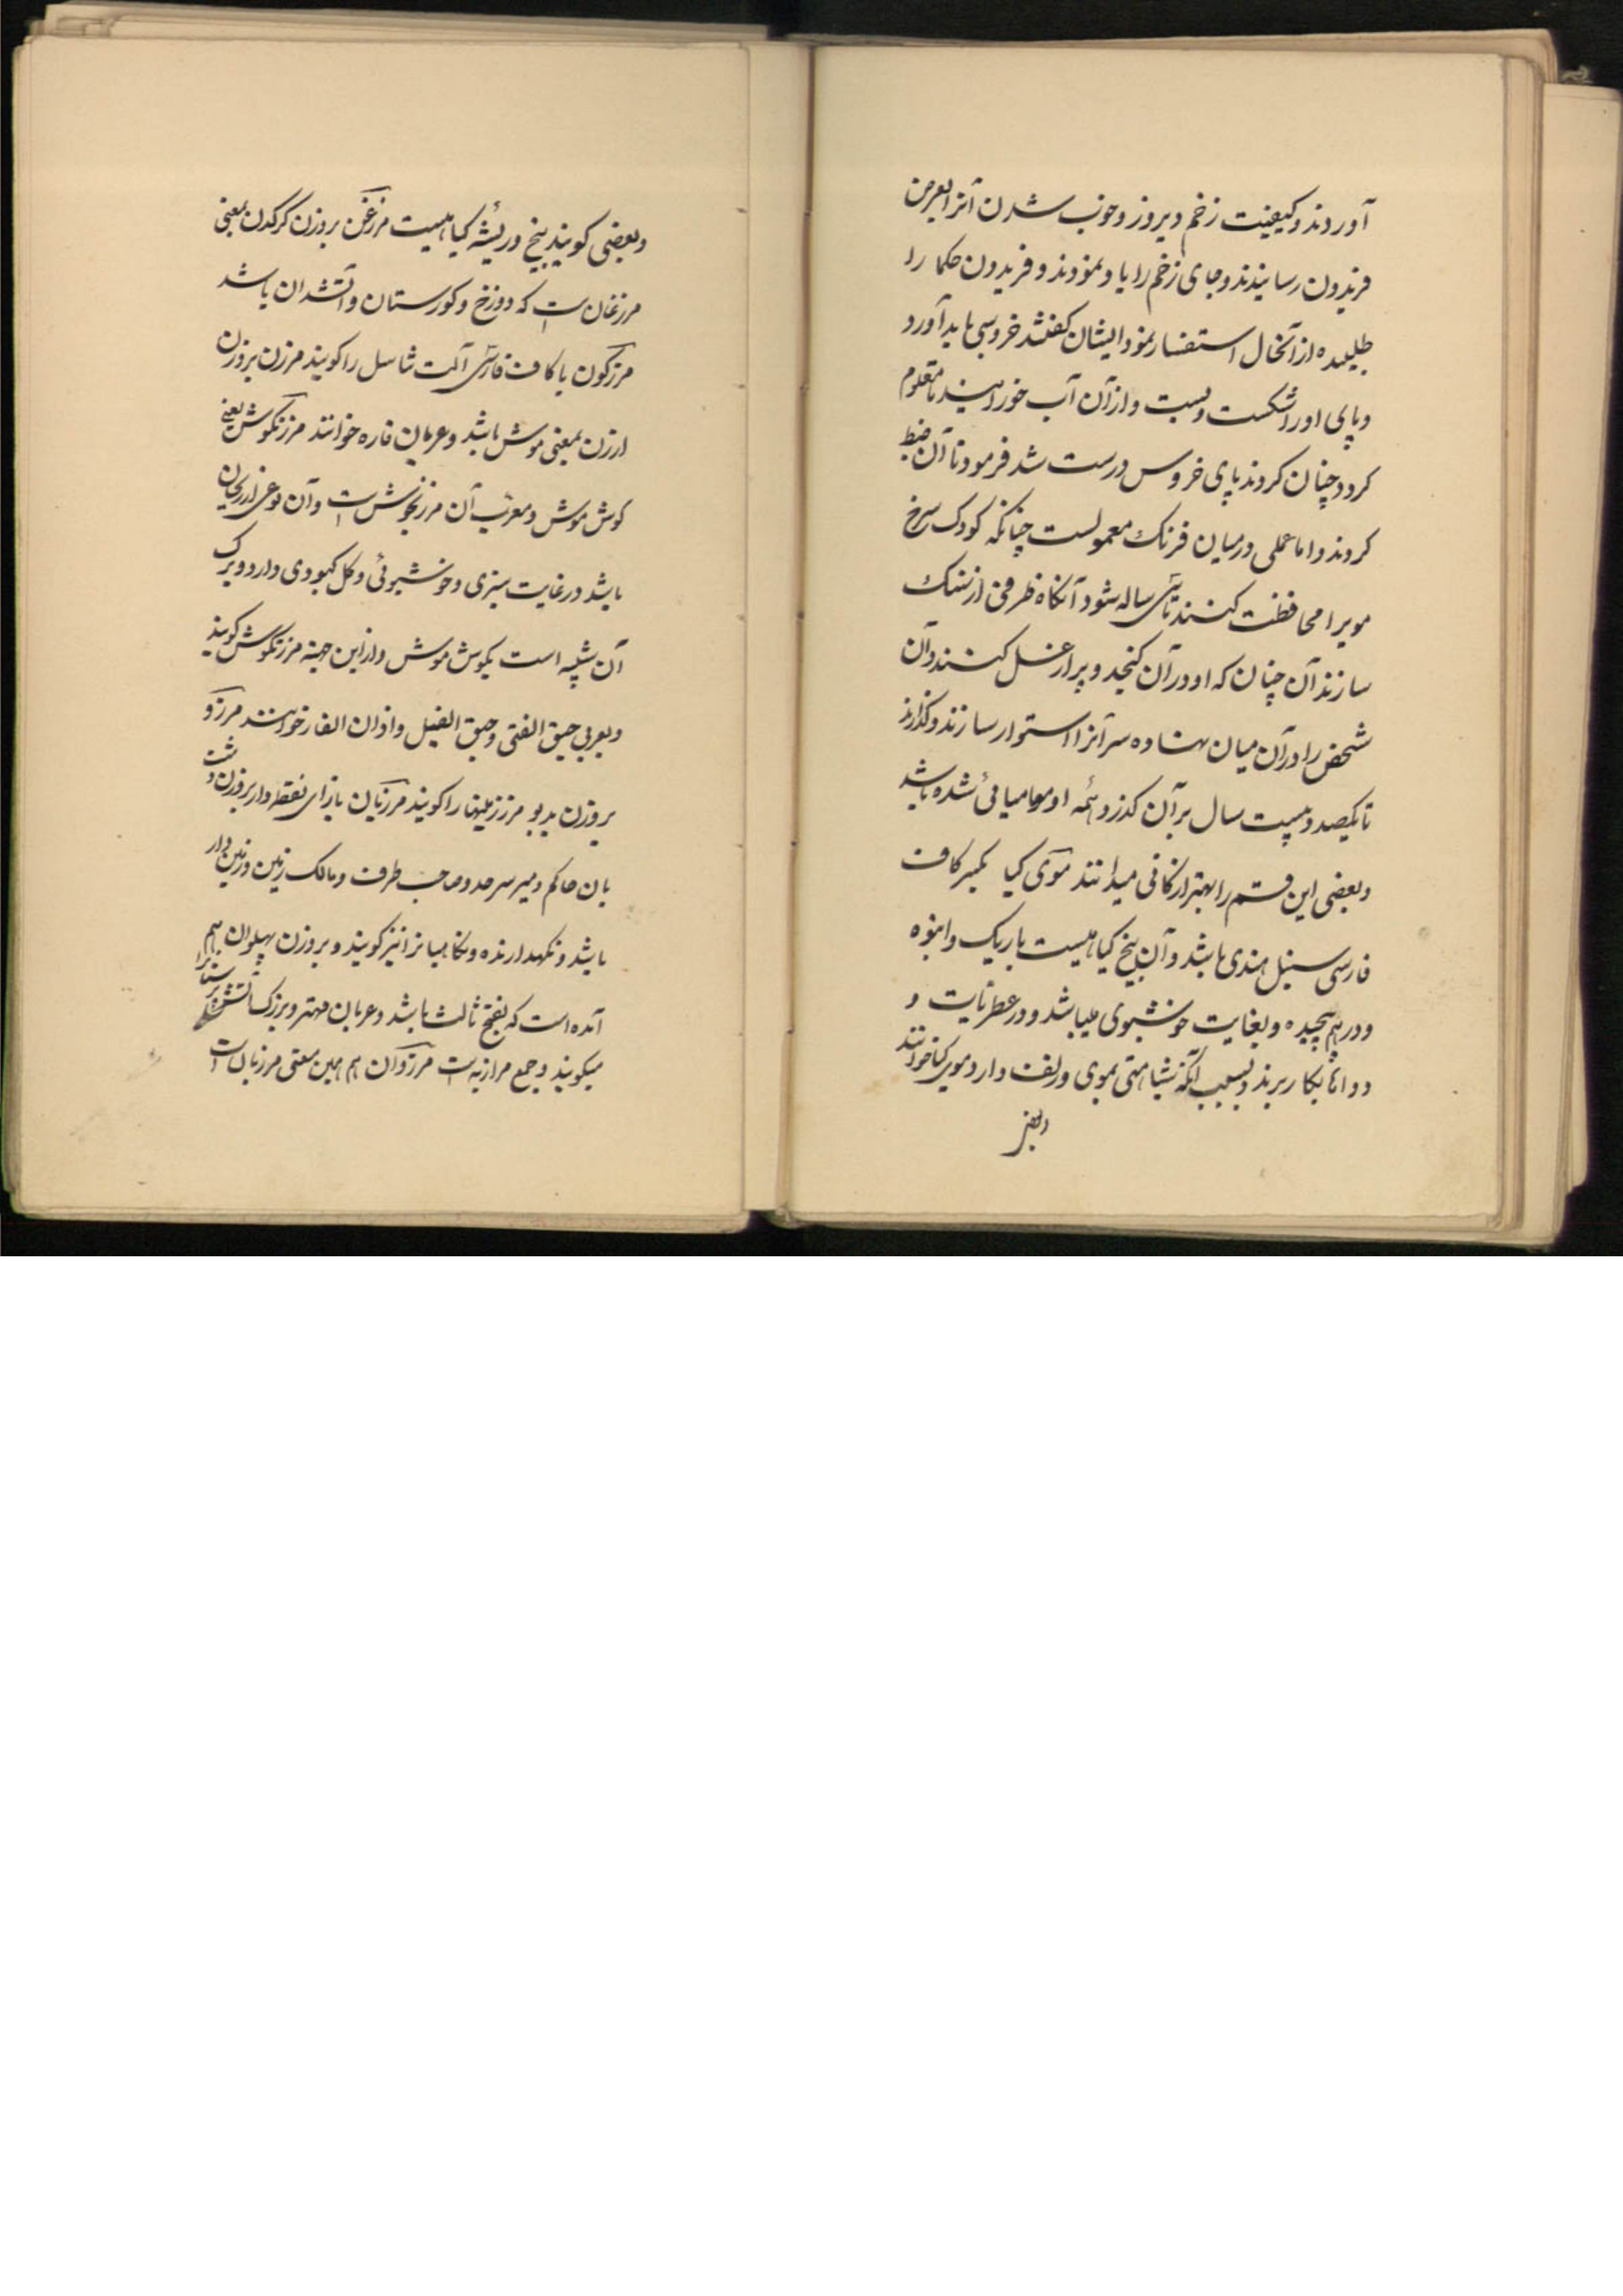 آوردند و کیفیت زخم دیروز و خوب شدن آنرا بعرض
فریدون رسانیدند و جای زخم را باو نمودند و فریدون حکما را
طلبیده از آنحال استفسار نمود ایشان گفتند خروسی باید آورد
و پای او را شکست و بست و از آن آب خورانید تا معلوم
کردد چنان کردند پای خروس درست شد فرمود تا آن ضبط
کردند و اما عملی در میان فرنک معمولست چنانکه کودک سرخ
مویرا محافظت کنند تا سی ساله شود آنکاه ظرفی از سنک
سازند آن چنان که او در آن کنجد و پر از عسل کنند و آن
شخص را در آن میان نهاده سر آنرا استوار سازند و کذارند
تا یکصد و بیست سال بر آن کذرد همه او مومیائی شده باشد
و بعضی این قسم را بهتر از کانی میدانند موی کیا بکسر کاف
فارسی سنبل هندی باشد و آن بیخ کیاهیست باریک و انبوه
و در هم پیچیده و بغایت خوشبوی میباشد و در عطریات و
دواها بکار برند و بسبب آنکه شباهتی بموی و زلف دارد موی کیا خوانند
و بعضی
و بعضی کویند بیخ و ریشه کیاهیست مرزغن بروزن کرکدن بمعنی
مرزغان است که دوزخ و کورستان و آتشدان باشد
مرزکون با کاف فارسی آلت تناسل را کویند مرزن بروزن
ارزن بمعنی موش باشد و عربان فاره خوانند مرزنکوش یعنی
کوش موش و معرب آن مرزنجوش است و آن نوعی از ریحان
باشد در غایت سبزی و خوشبوئی و کل کبودی دارد و برک
آن شبیه است بکوش موش و از این جهة مرزنکوش کویند
و بعربی حبق الفتی و حبق الفیل و اذان الفار خوانند مرزو
بروزن بدبو مرز زمینها را کویند مرزبان با زای نقطه دار بروزن دشت
بان حاکم و میر سرحد و صاحب طرف و مالک زمین و زمین دار
باشد و نکهدارنده و نکاهبانرا نیز کویند و بروزن پهلوان هم
آمده است که بفتح ثالث باشد و عربان مهتر و بزرک آتش پرستانرا
میکویند و جمع مرازبه است مرزوان هم بهمین معنی مرزبان است